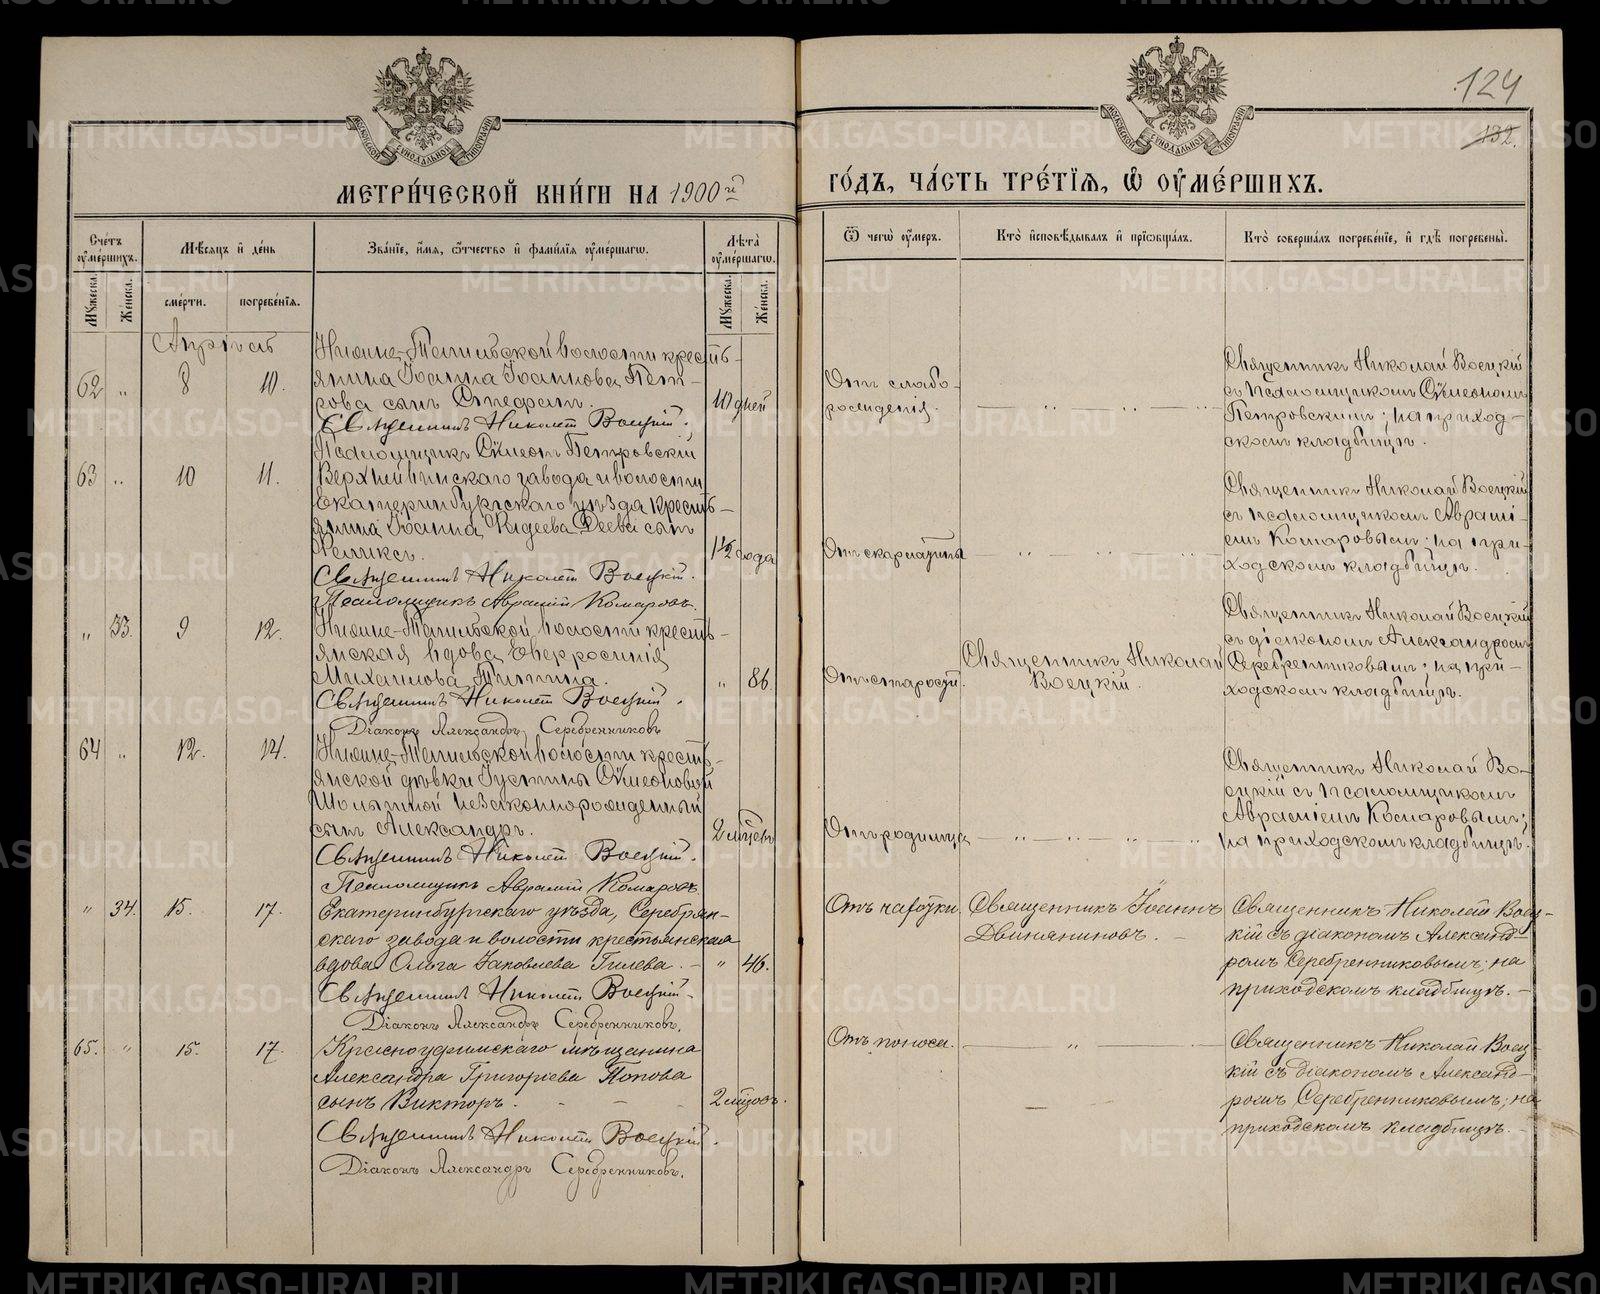 124
132.
МЕТРИ́ЧЕСКОЙ КНИ́ГИ НА 1900й
ГО́ДЪ, ЧА́СТЬ ТРЕ́ТІѦ, Ѡ҆ ОУ҆МЕ́РШИХЪ.
Сче́тъ оу҆ме́ршихъ.
Мꙋ́жеска.
Же́нска.
Мѣ́сяцъ и҆ де́нь
сме́рти.
погребе́нїѧ.
Зва́нїе, и҆́мѧ, ѻ҆́тчество и҆ фами́лїѧ оу҆ме́ршагѡ.
Лѣ́та оу҆ме́ршагѡ.
Мꙋ́жеска.
Же́нска.
Ѿ чегѡ̀ оу҆́меръ.
Кто̀ и҆сповѣ́дывалъ и҆ прїѡбща́лъ.
Кто̀ соверша́лъ погребе́нїе, и҆ гдѣ̀ погребены̀.
Апрѣль
62 " 8 10.
Нижне-Тагильской волости кресть-
янина Іоанна Іоаннова Пет-
рова сынъ Стефанъ.
10 дней
Священникъ Николай Воецкій.
Псаломщикъ Сѵмеонъ Петровскій
Отъ слабо-
рожденія.
Священникъ Николай Воецкій
съ псаломщикомъ Сѵмеономъ
Петровскимъ; на приход-
скомъ кладбищѣ.
63 " 10 11.
завода и волости
Екатеринбургскаго уѣзда кресть-
янина Іоанна сынъ
1½ года
Священникъ Николай Воецкій.
Псаломщикъ Аврамій Комаровъ.
Отъ скарлатины
Священникъ Николай Воецкій
съ псаломщикомъ Аврамі-
емъ Комаровымъ; на при-
ходскомъ кладбищѣ.
" 33. 9 12.
Нижне-Тагильской волости кресть-
янская вдова Евфросинія
Михаилова
" 86
Священникъ Николай Воецкій.
Діаконъ Александръ Серебренниковъ
Отъ старости.
Священникъ Николай
Воецкій.
Священникъ Николай Воецкій
съ діакономъ Александромъ
Серебренниковымъ; на при-
ходскомъ кладбищѣ.
64 " 12. 14.
Нижне-Тагильской волости кресть-
янской дѣвки Іустины Сѵмеоновой
незаконнорожденный
сынъ Александръ.
2 мѣсяц.
Священникъ Николай Воецкій.
Псаломщикъ Аврамій Комаровъ.
Отъ родимца
Священникъ Николай Во-
ецкій съ псаломщикомъ
Авраміемъ Комаровымъ;
на приходскомъ кладбищѣ.
" 34. 15. 17.
Екатеринбургскаго уѣзда, Серебрян-
скаго завода и волости крестьянская
вдова Ольга Іаковлева Гилева.
" 46.
Священникъ Николай Воецкій.
Діаконъ Александръ Серебренниковъ.
Отъ чахотки.
Священникъ Іоаннъ
Двиняниновъ.
Священникъ Николай Воец-
кій съ діакономъ Александ-
ромъ Серебренниковымъ; на
приходскомъ кладбищѣ.
65. " 15. 17.
Красноуфимскаго мѣщанина
Александра Григоріева Попова
сынъ Викторъ.
2 мѣсяц.
Священникъ Николай Воецкій.
Діаконъ Александръ Серебренниковъ.
Отъ поноса.
Священникъ Николай Воец-
кій съ діакономъ Александ-
ромъ Серебренниковымъ; на
приходскомъ кладбищѣ.
METRIKI.GASO-URAL.RU